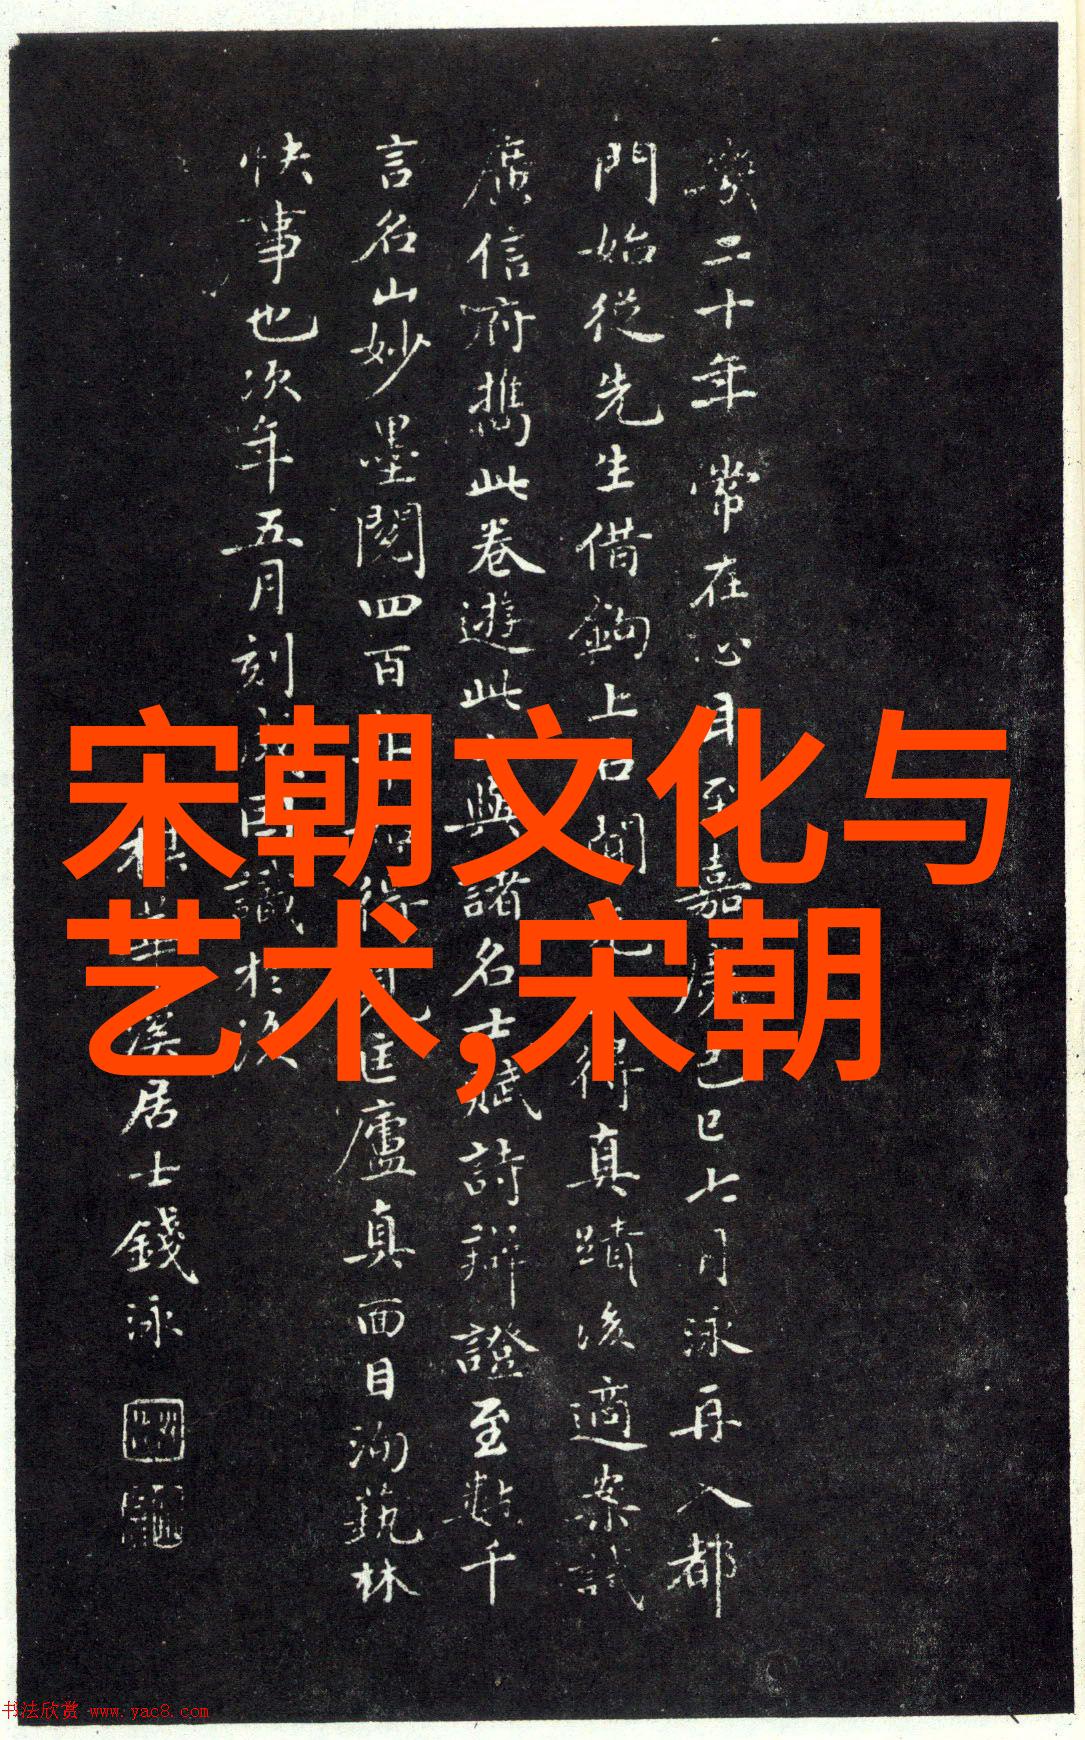 宋朝文化与
艺术,宋朝
二十年常在心目至嘉慶己巳七月泳再入都
門始從先生借鉤上石閒先得真蹟後適案試
廣信府攜此卷遊此與諸名士賦詩辯證至數千
言名山妙墨閱四百年匡廬真面目洵藝林
快事也次年五月刻成因識於後
梅華溪居士錢泳
书法欣赏 www.yac8.com